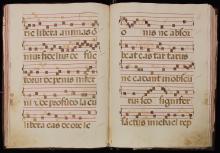 ne libera animas o
nium fidelium de
torum de penis infer
ni & de profundo lacu
libera eas de ore le
o nis ne absor
beat eas tartarus
ne cadant in obscu
rum sed signifer
sanctus michael rep